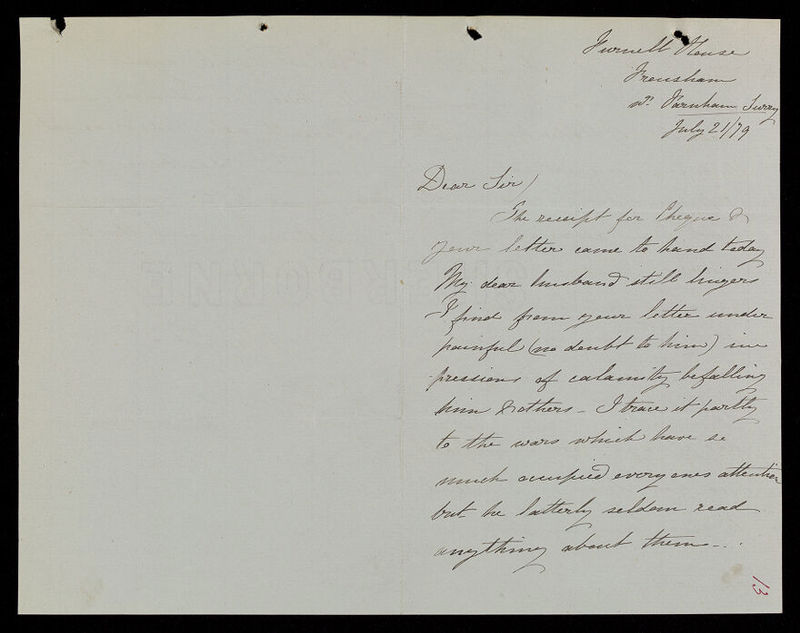 Furnell House
Frensham
nr. Farnham Surrey
July 21/79
Dear Sir/
The receipt for Cheque &
your letter came to hand today
My dear husband still lingers
I find from your letter under
painful (no doubt to him) im
pressions of calamity befalling
him & others - I trace it partly
to the wars which have so
much occupied every ones attention
but he latterly seldom read
anything about them - . .
13